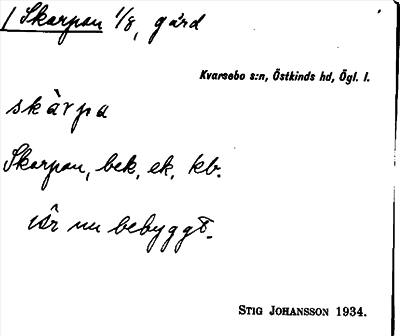 / Skarpan 1/8, gård
Kvarsebo s:n, Östkinds hd, Ögl. l.
skàrpa
Skarpan, bek, ek, kb.
är nu bebyggt.
Stig Johansson 1934.